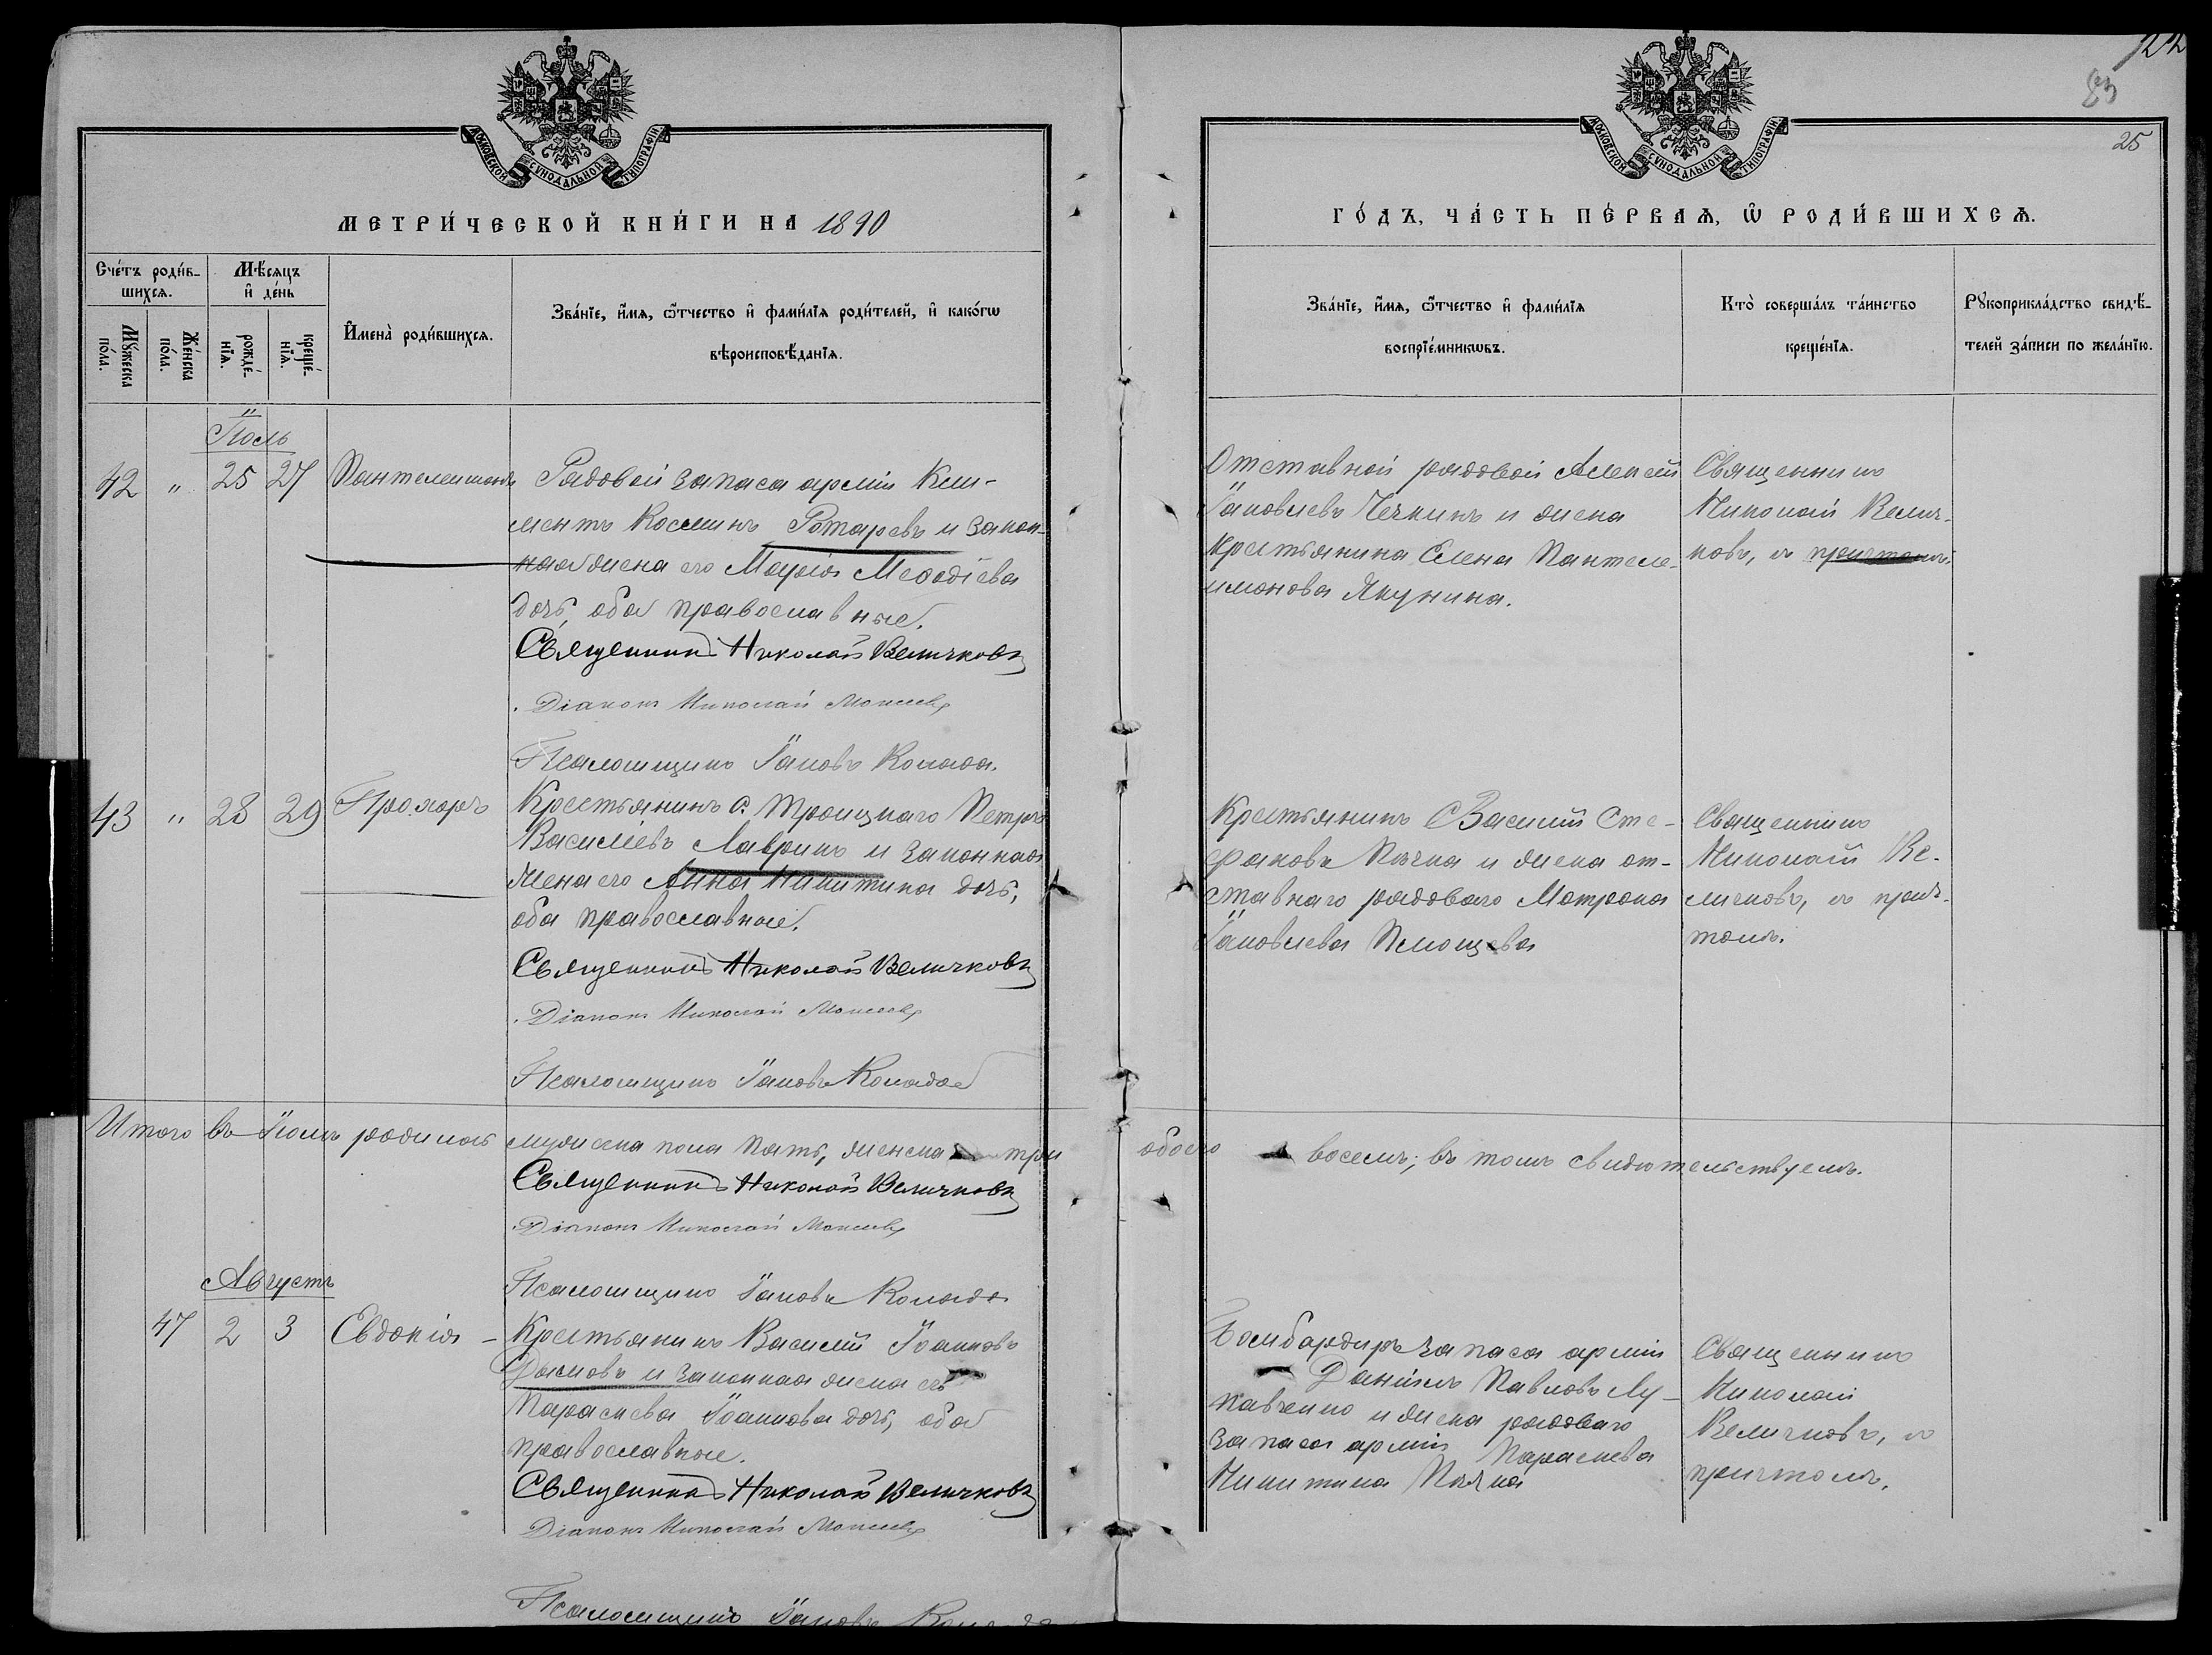 124
83
25
МОСКОВСКОЙ СУНОДАЛЬНОЙ ТУПОГРАФІИ
МОСКОВСКОЙ СУНОДАЛЬНОЙ ТУПОГРАФІИ
МЕТРИ́ЧЕСКОЙ КНИ́ГИ НА 1890
ГО́ДЪ, ЧА́СТЬ ПЕ́РВАѦ, Ѿ РОДИ́ВШИХСѦ.
Сче́тъ роди́в-
шихсѧ.
Мꙋ́жеска
по́ла.
Же́нска
по́ла.
Мѣ́сѧцъ
и҆ де́нь
рожде́-
нїѧ.
креще́-
нїѧ.
И҆мена̀ роди́вшихсѧ.
Зва́нїе, и҆́мѧ, ѻ҆́тчество и҆ фами́лїѧ роди́телей, и҆ како́гѡ
вѣроисповѣ́данїѧ.
Зва́нїе, и҆́мѧ, ѻ҆́тчество и҆ фами́лїѧ
воспрїе́мникѡвъ.
Кто̀ соверша́лъ та́инство
креще́нїѧ.
Рꙋкоприкла́дство свидѣ́-
телей за́писи по жела́нїю.
Іюль
42 " 25 27 Пантелеимонъ
Рядовой запаса арміи Кли-
ментъ Косминъ Ротаревъ и закон-
ная жена его Марія Меѳодіева
дочь, оба православные.
Священникъ Николай Величковъ
Діаконъ Николай Моисеевъ
Псаломщикъ Іаковъ Колада
Отставной рядовой Алексѣй
Іаковлевъ Чечкинъ и жена
крестьянина Елена Пантеле-
имонова Якунина.
Священникъ
Николай Велич-
ковъ, съ причтомъ.
43 " 28 29 Прохоръ
Крестьянинъ с. Троицкаго Петръ
Василіевъ Лавринъ и законная
жена его Анна Никитина дочь,
оба православные.
Священникъ Николай Величковъ
Діаконъ Николай Моисеевъ
Псаломщикъ Іаковъ Колада
Крестьянинъ Василій Сте-
фановъ Пѣчка и жена от-
ставнаго рядоваго Матрона
Іаковлева Плющева
Священникъ
Николай Ве-
личковъ, съ прич-
томъ.
Итого въ Іюлѣ родилось мужеска пола пять, женска три обоего восемь; въ томъ свидѣтельствуемъ.
Священникъ Николай Величковъ
Діаконъ Николай Моисеевъ
Псаломщикъ Іаковъ Колада
Августъ
47 2 3 Евдокія
Крестьянинъ Василій Іоанновъ
Дымовъ и законная жена его
Параскева Іоаннова дочь, оба
православные.
Священникъ Николай Величковъ
Діаконъ Николай Моисеевъ
Псаломщикъ Іаковъ Колада
Бомбардиръ запаса арміи
Даніилъ Павловъ Лу-
кавченко и жена рядоваго
запаса арміи Параскева
Никитина Пѣчка
Священникъ
Николай
Величковъ, съ
причтомъ.